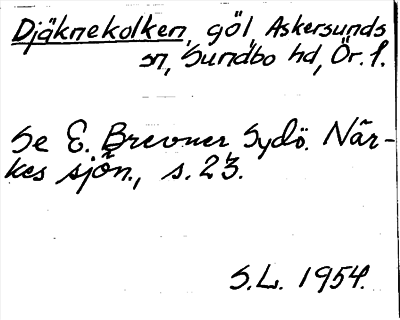 Djäknekolken, göl, Askersunds
sn, Sundbo hd, Ör. l.
Se E. Brevner Sydö. När-
kes sjön., s. 23.
S.L. 1954.